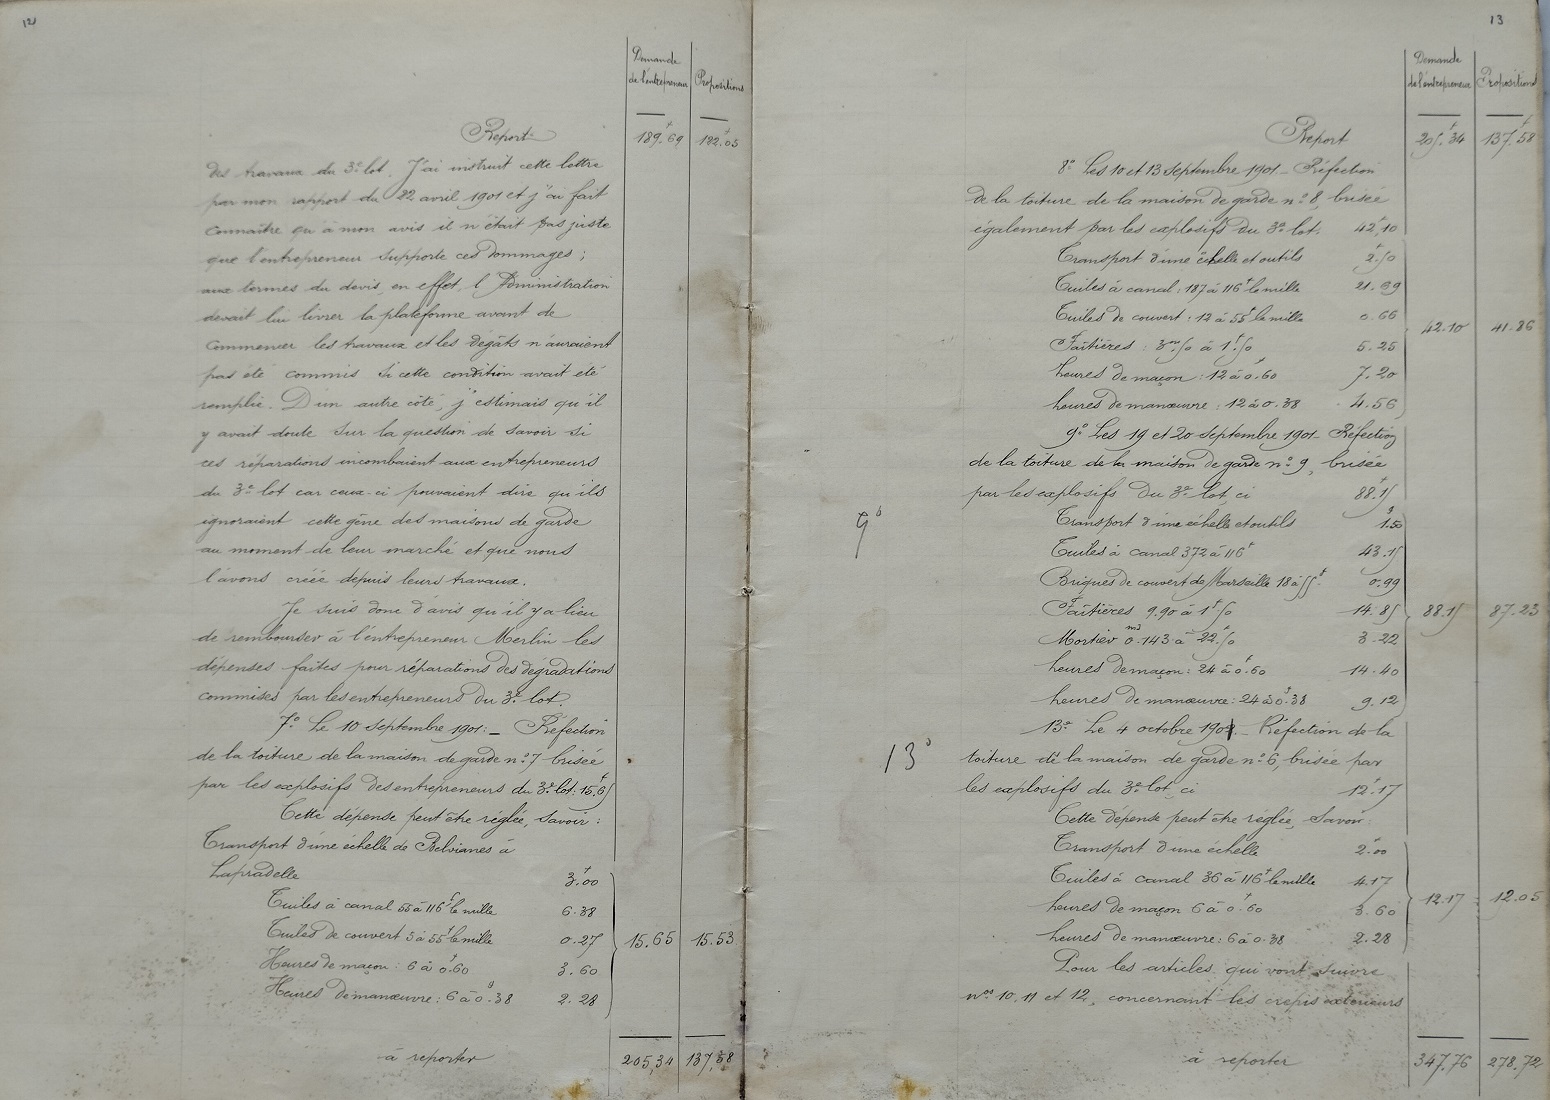 12
Demande de l'entrepreneur
Propositions
Report 189f.69 122f.05
des travaux du 3e lot. J'ai instruit cette lettre
par mon rapport du 22 avril 1901 et j'ai fait
connaître qu'à mon avis il n'était pas juste
que l'entrepreneur supporte ces dommages ;
aux termes du devis, en effet, l'Administration
devait lui livrer la plateforme avant de
commencer les travaux et les dégâts n'auraient
pas été commis si cette condition avait été
remplie. D'un autre côté, j'estimais qu'il
y avait doute sur la question de savoir si
ces réparations incombaient aux entrepreneurs
du 3e lot car ceux-ci pouvaient dire qu'ils
ignoraient cette gêne des maisons de garde
au moment de leur marché et que nous
l'avons créée depuis leurs travaux.
Je suis donc d'avis qu'il y a lieu
de rembourser à l'entrepreneur Merlin les
dépenses faites pour réparations des dégradations
commises par les entrepreneurs du 3e lot.
7o Le 10 Septembre 1901. – Réfection
de la toiture de la maison de garde no 7 brisée
par les explosifs des entrepreneurs du 3e lot: 15f.65
Cette dépense peut être réglée, savoir :
Transport d'une échelle de Belvianes à
Lapradelle 3f.00
Tuiles à canal 55 à 116f le mille 6.38
Tuiles de couvert 5 à 55f le mille 0.27 15.65 15.53
Heures de maçon : 6 à 0f.60 3.60
Heures de manœuvre : 6 à 0f.38 2.28
à reporter 205,34 137,58
13
Demande de l'entrepreneur
Propositions
Report 205f.34 137f.58
8o Les 10 et 13 Septembre 1901 – Réfection
de la toiture de la maison de garde no 8, brisée
également par les explosifs du 3e lot. 42f,10
Transport d'une échelle et outils 2f.50
Tuiles à canal : 187 à 116f le mille 21.69
Tuiles de couvert : 12 à 55f le mille 0.66 42.10 41.86
Faîtières : 3m.50 à 1f.50 5.25
heures de maçon : 12 à 0f.60 7.20
heures de manœuvre : 12 à 0.38 4.56
9o Les 19 et 20 Septembre 1901 – Réfection
de la toiture de la maison de garde no 9, brisée
par les explosifs du 3e lot ci 88f.15
9o
Transport d'une échelle et outils 1.50
Tuiles à canal 372 à 116f 43.15
Briques de couvert de Marseille 18 à 55f 0.99
Faîtières 9.90 à 1f.50 14.85 88.15 87.23
Mortier 0m3.143 à 22f.50 3.22
heures de maçon : 24 à 0f.60 14.40
heures de manœuvre : 24 à 0f.38 9.12
13o Le 4 octobre 1901. – Réfection de la
13o
toiture de la maison de garde no 6, brisée par
les explosifs du 3e lot, ci 12f.17
Cette dépense peut être réglée, Savoir :
Transport d'une échelle 2f.00
Tuiles à canal 36 à 116f le mille 4.17
heures de maçon 6 à 0f.60 3.60 12.17 12.05
heures de manœuvre : 6 à 0.38 2.28
Pour les articles qui vont suivre
nos 10, 11 et 12, concernant les crépis extérieurs
à reporter 347,76 278,72